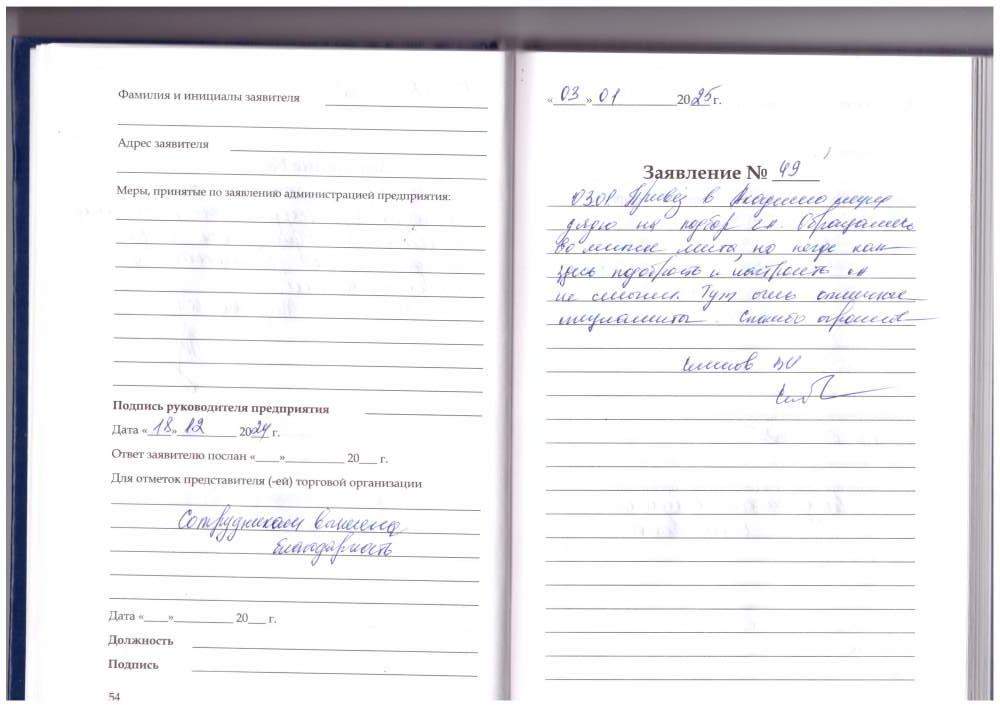 Фамилия и инициалы заявителя
Адрес заявителя
Меры, принятые по заявлению администрацией предприятия:
Подпись руководителя предприятия
Дата «18» 12 2024 г.
Ответ заявителю послан «___» 20__ г.
Для отметок представителя (-ей) торговой организации
Сотрудникам вынесена
благодарность
Дата «___» 20__ г.
Должность
Подпись
54
«03» 01 2025 г.
Заявление № 49
03.01 Привёз в Академию
дядю на подбор са. Обращались
во многие места, но нигде как
здесь подобрать и настроить са
не смогли. Тут очень отличные
специалисты. Спасибо огромное